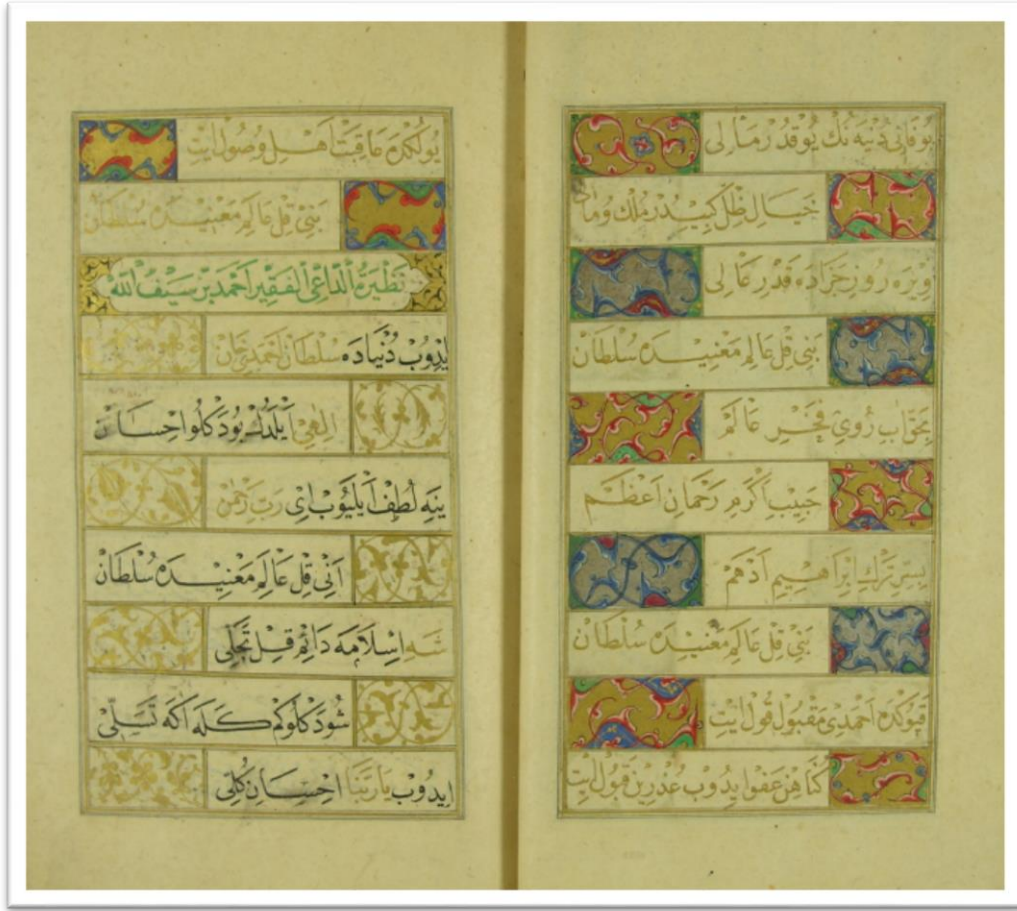 بو فانی دنیه نك یوقدر مآلی
خیال ظل كبیدر ملك و مالی
ویره روز جزاده قدر عالی
بنی قل عالم معنیده سلطان
بحق آب روی فخر عالم
حبیب اكرم رحمان اعظم
بسر ترك ابراهیم ادهم
بنی قل عالم معنیده سلطان
قپوكده احمدی مقبول قول ایت
كناهن عفو ایدوب عذرین قبول ایت
یولكده عاقبت اهل وصول ایت
بنی قل عالم معنیده سلطان
نظیرۀ الداعی الفقیر احمد بن سیف الله
ایدوب دنیاده سلطان احمدی خان
الهی ایلدك بو دكلو احسان
ینه لطف ایلیوب ای رب رحمن
آنی قل عالم معنیده سلطان
شه اسلامه دائم قل تجلی
شو دكلو كم كله اكه تسلی
ایدوب یا ربنا احسان كلی